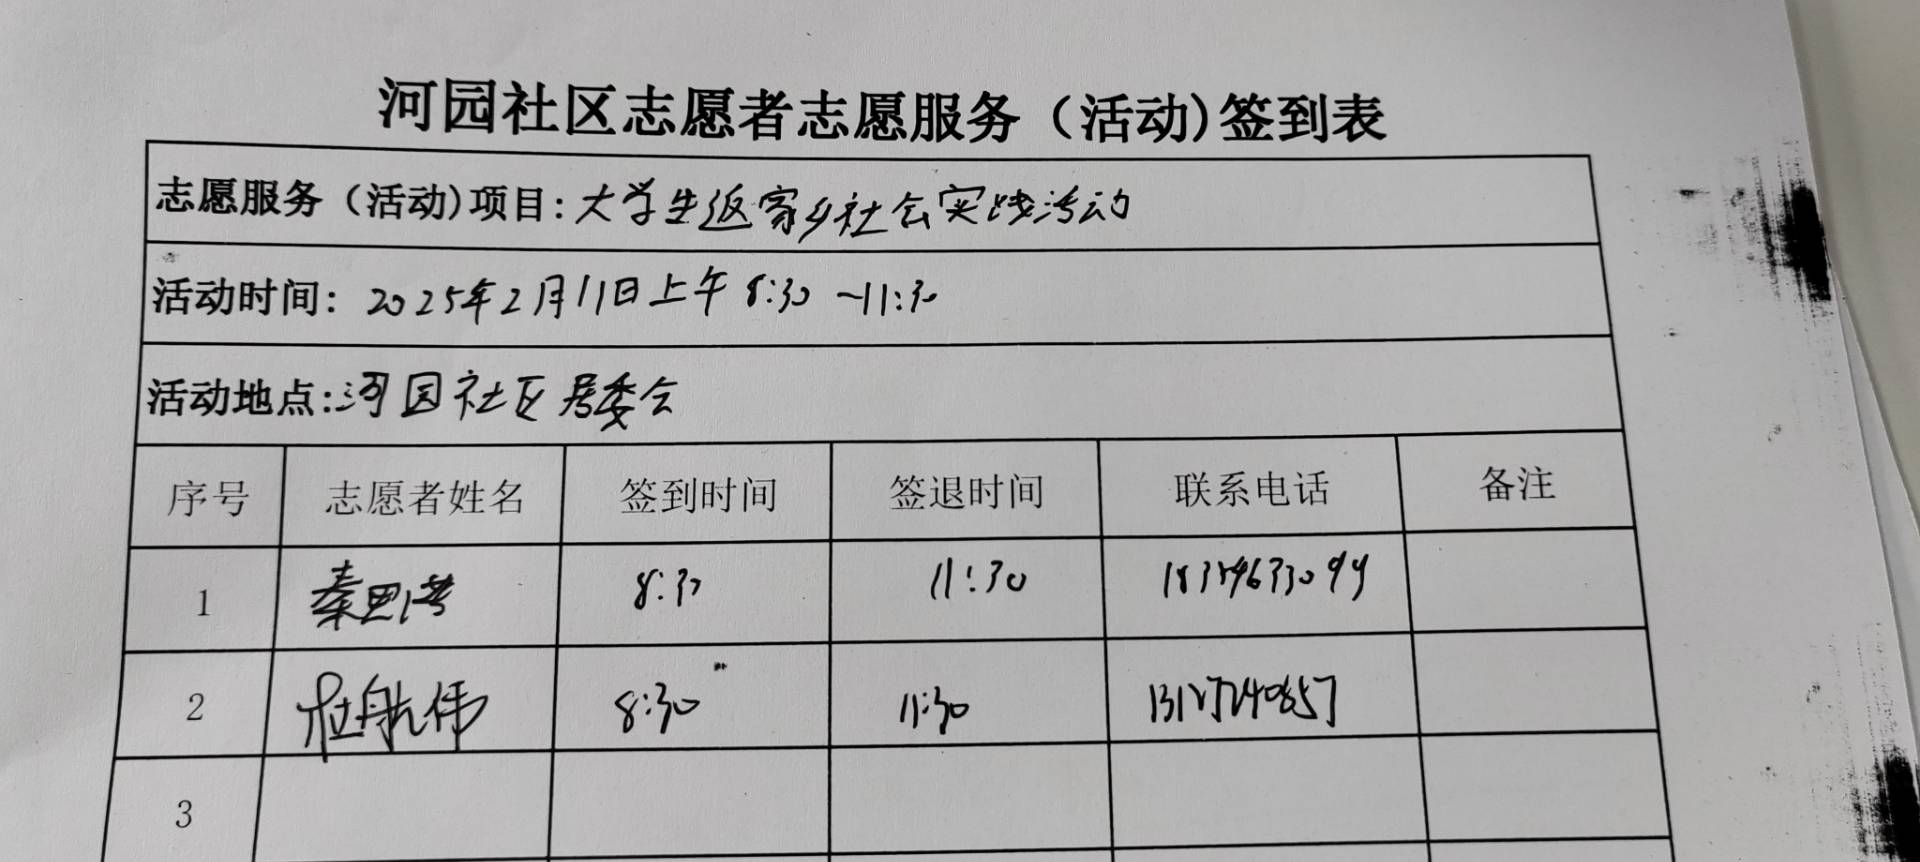 河园社区志愿者志愿服务（活动)签到表
志愿服务（活动)项目:大学生返家乡社会实践活动
活动时间: 2025年2月11日上午 8:30 -11:30
活动地点:河园社区居委会
序号 志愿者姓名 签到时间 签退时间 联系电话 备注
1 秦思 8:30 11:30
2 航伟 8:30 11:30
3